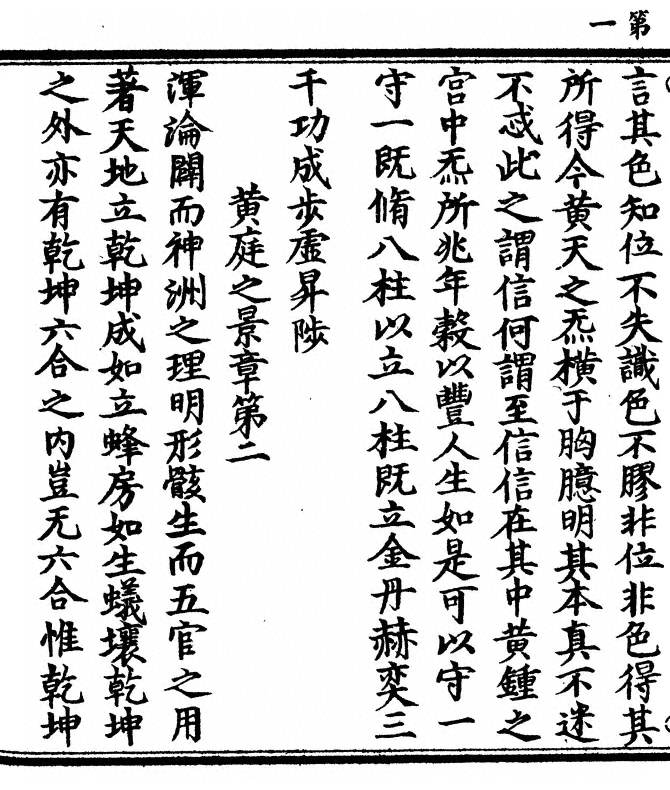 第一
言其色知位不失識色不膠非位非色得其
所得今黄天之炁横于胸臆明其本真不迷
不惑此之謂信何謂至信信在其中黄鍾之
宫中炁所兆年榖以豐人生如是可以守一
守一既脩八柱以立八柱既立金丹赫奕三
千功成步虚昇陟
黄庭之景章第二
渾淪闢而神洲之理明形骸生而五官之用
著天地立乾坤成如立蜂房如生蟻壤乾坤
之外亦有乾坤六合之内豈无六合惟乾坤